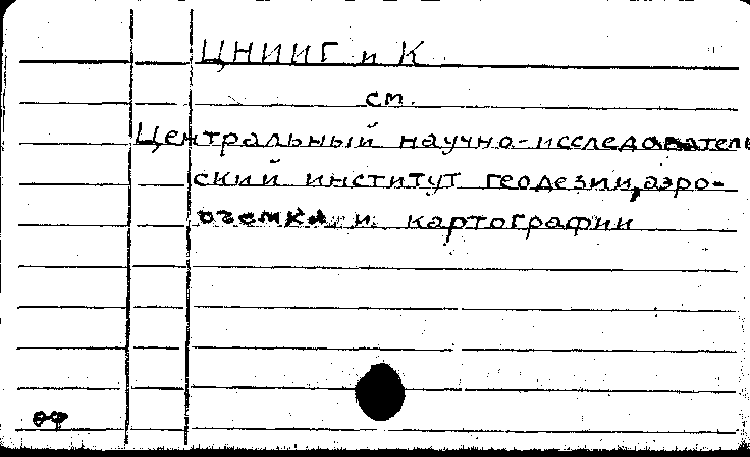 ЦНИИГ и К
см.
Центральный научно-исследователь
ский институт геодезии, аэро-
съемки и картографии
оф